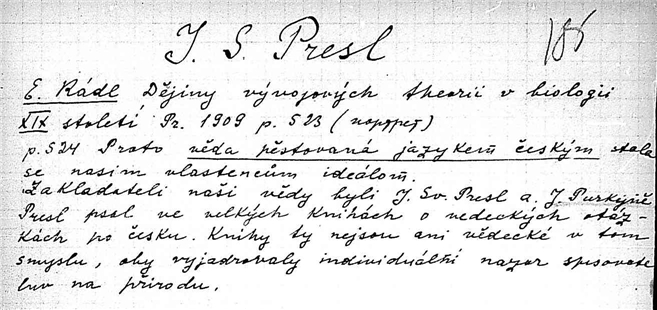 J. S. Presl
185
E. Rádl Dějiny vývojových theorií v biologii
XIX století Pr. 1909 p. 523 (портрет)
p. 524 Proto věda pěstovaná jazykem českým stala
se nasim vlastencům ideálom.
Zakladateli naši vědy byli J. Sv. Presl a J. Purkyně
Presl psal ve velkých knihách o vedeckých otáz-
kách po česku. Knihy ty nejsou ani vědecké v tom
smyslu, aby vyjadrovaly individuální nazor spisovate
luv na přírodu.